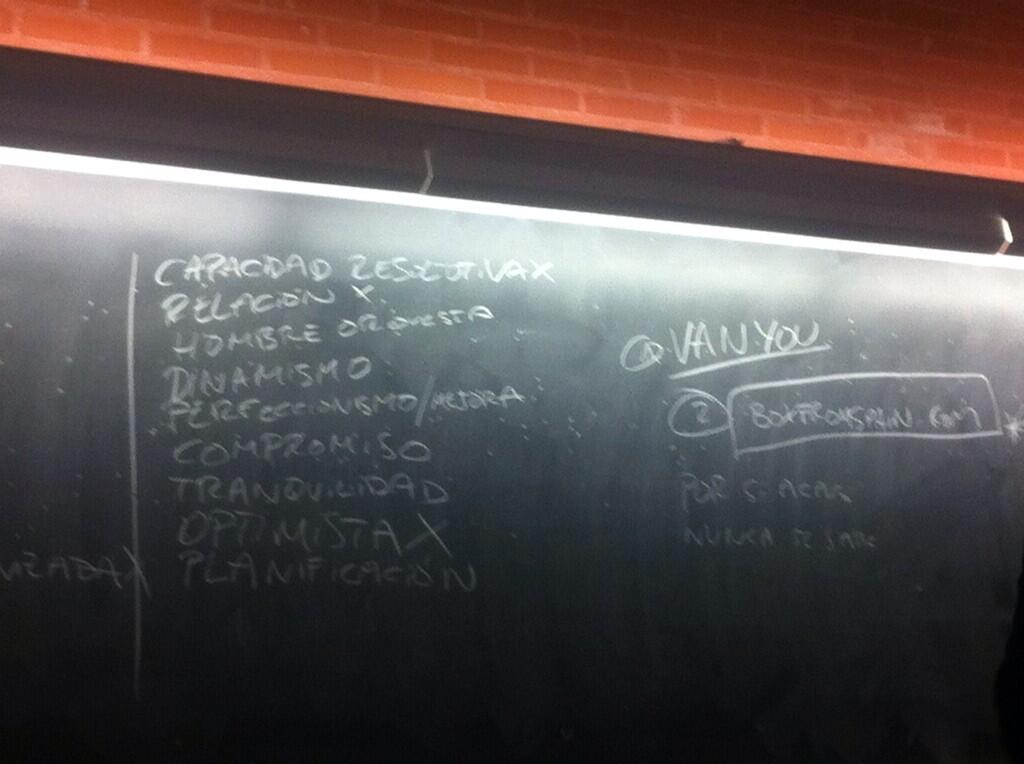 CAPACIDAD RESOLUTIVA X
RELACIÓN X
HOMBRE ORQUESTA
DINAMISMO
PERFECCIONISMO/MEJORA
COMPROMISO
TRANQUILIDAD
OPTIMISTA X
PLANIFICACIÓN
IZADA X
@VANYOU
2 BOXFROMSPAIN.COM *
POR SI ACASO
NUNCA SE SABE